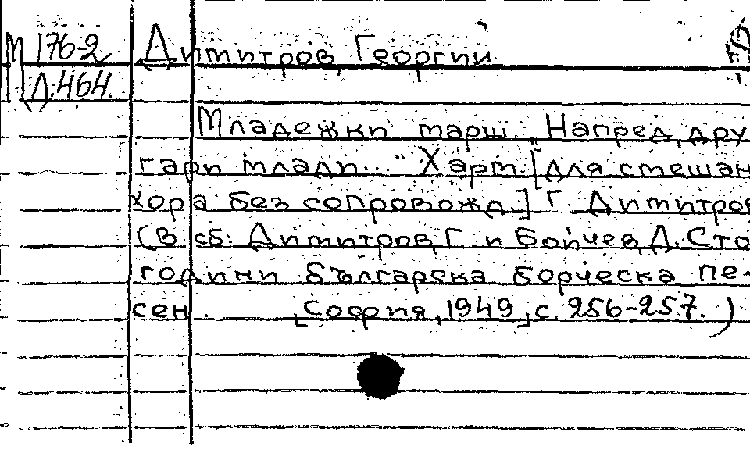 М 176-2 Димитров, Георгии
Д.464
Младежки марш „Напред, дру
гари млади..." Харт. [для смешан
хора без сопровожд.] Г. Димитров
(В сб: Димитров, Г. и Бойчев, Д. Сто
години българска борческа пе-
сен. [София, 1949, с. 256-257.)